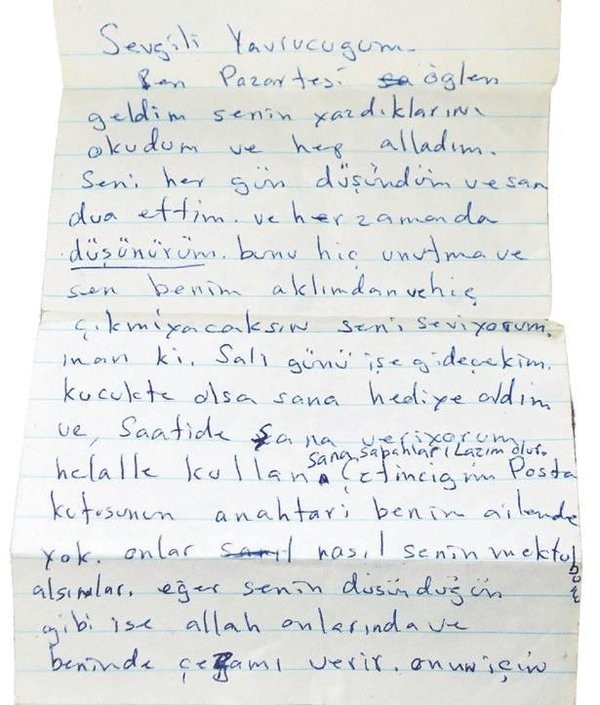 Sevgili Yavrucugum.
Ben Pazartesi öğlen
geldim senin yazdıklarını
okudum ve hep alladım.
Seni her gün düşündüm ve san
dua ettim. ve her zamanda
düşünürüm. bunu hiç unutma ve
sen benim aklımdan ve hiç
çıkmıyacaksın seni seviyorum.
inan ki. Salı günü işe gideçekim.
kucukte olsa sana hediye aldım
ve, Saatide sana veriyorum
sana sapahları Lazım olur.
helalle kullan Çetinciğim Posta
kutusunun anahtari benim ailemde
yok. onlar nasıl senin mektubunu
alsınlar. eğer senin düşündüğün
gibi ise allah onlarında ve
beninde çezamı verir. onun için